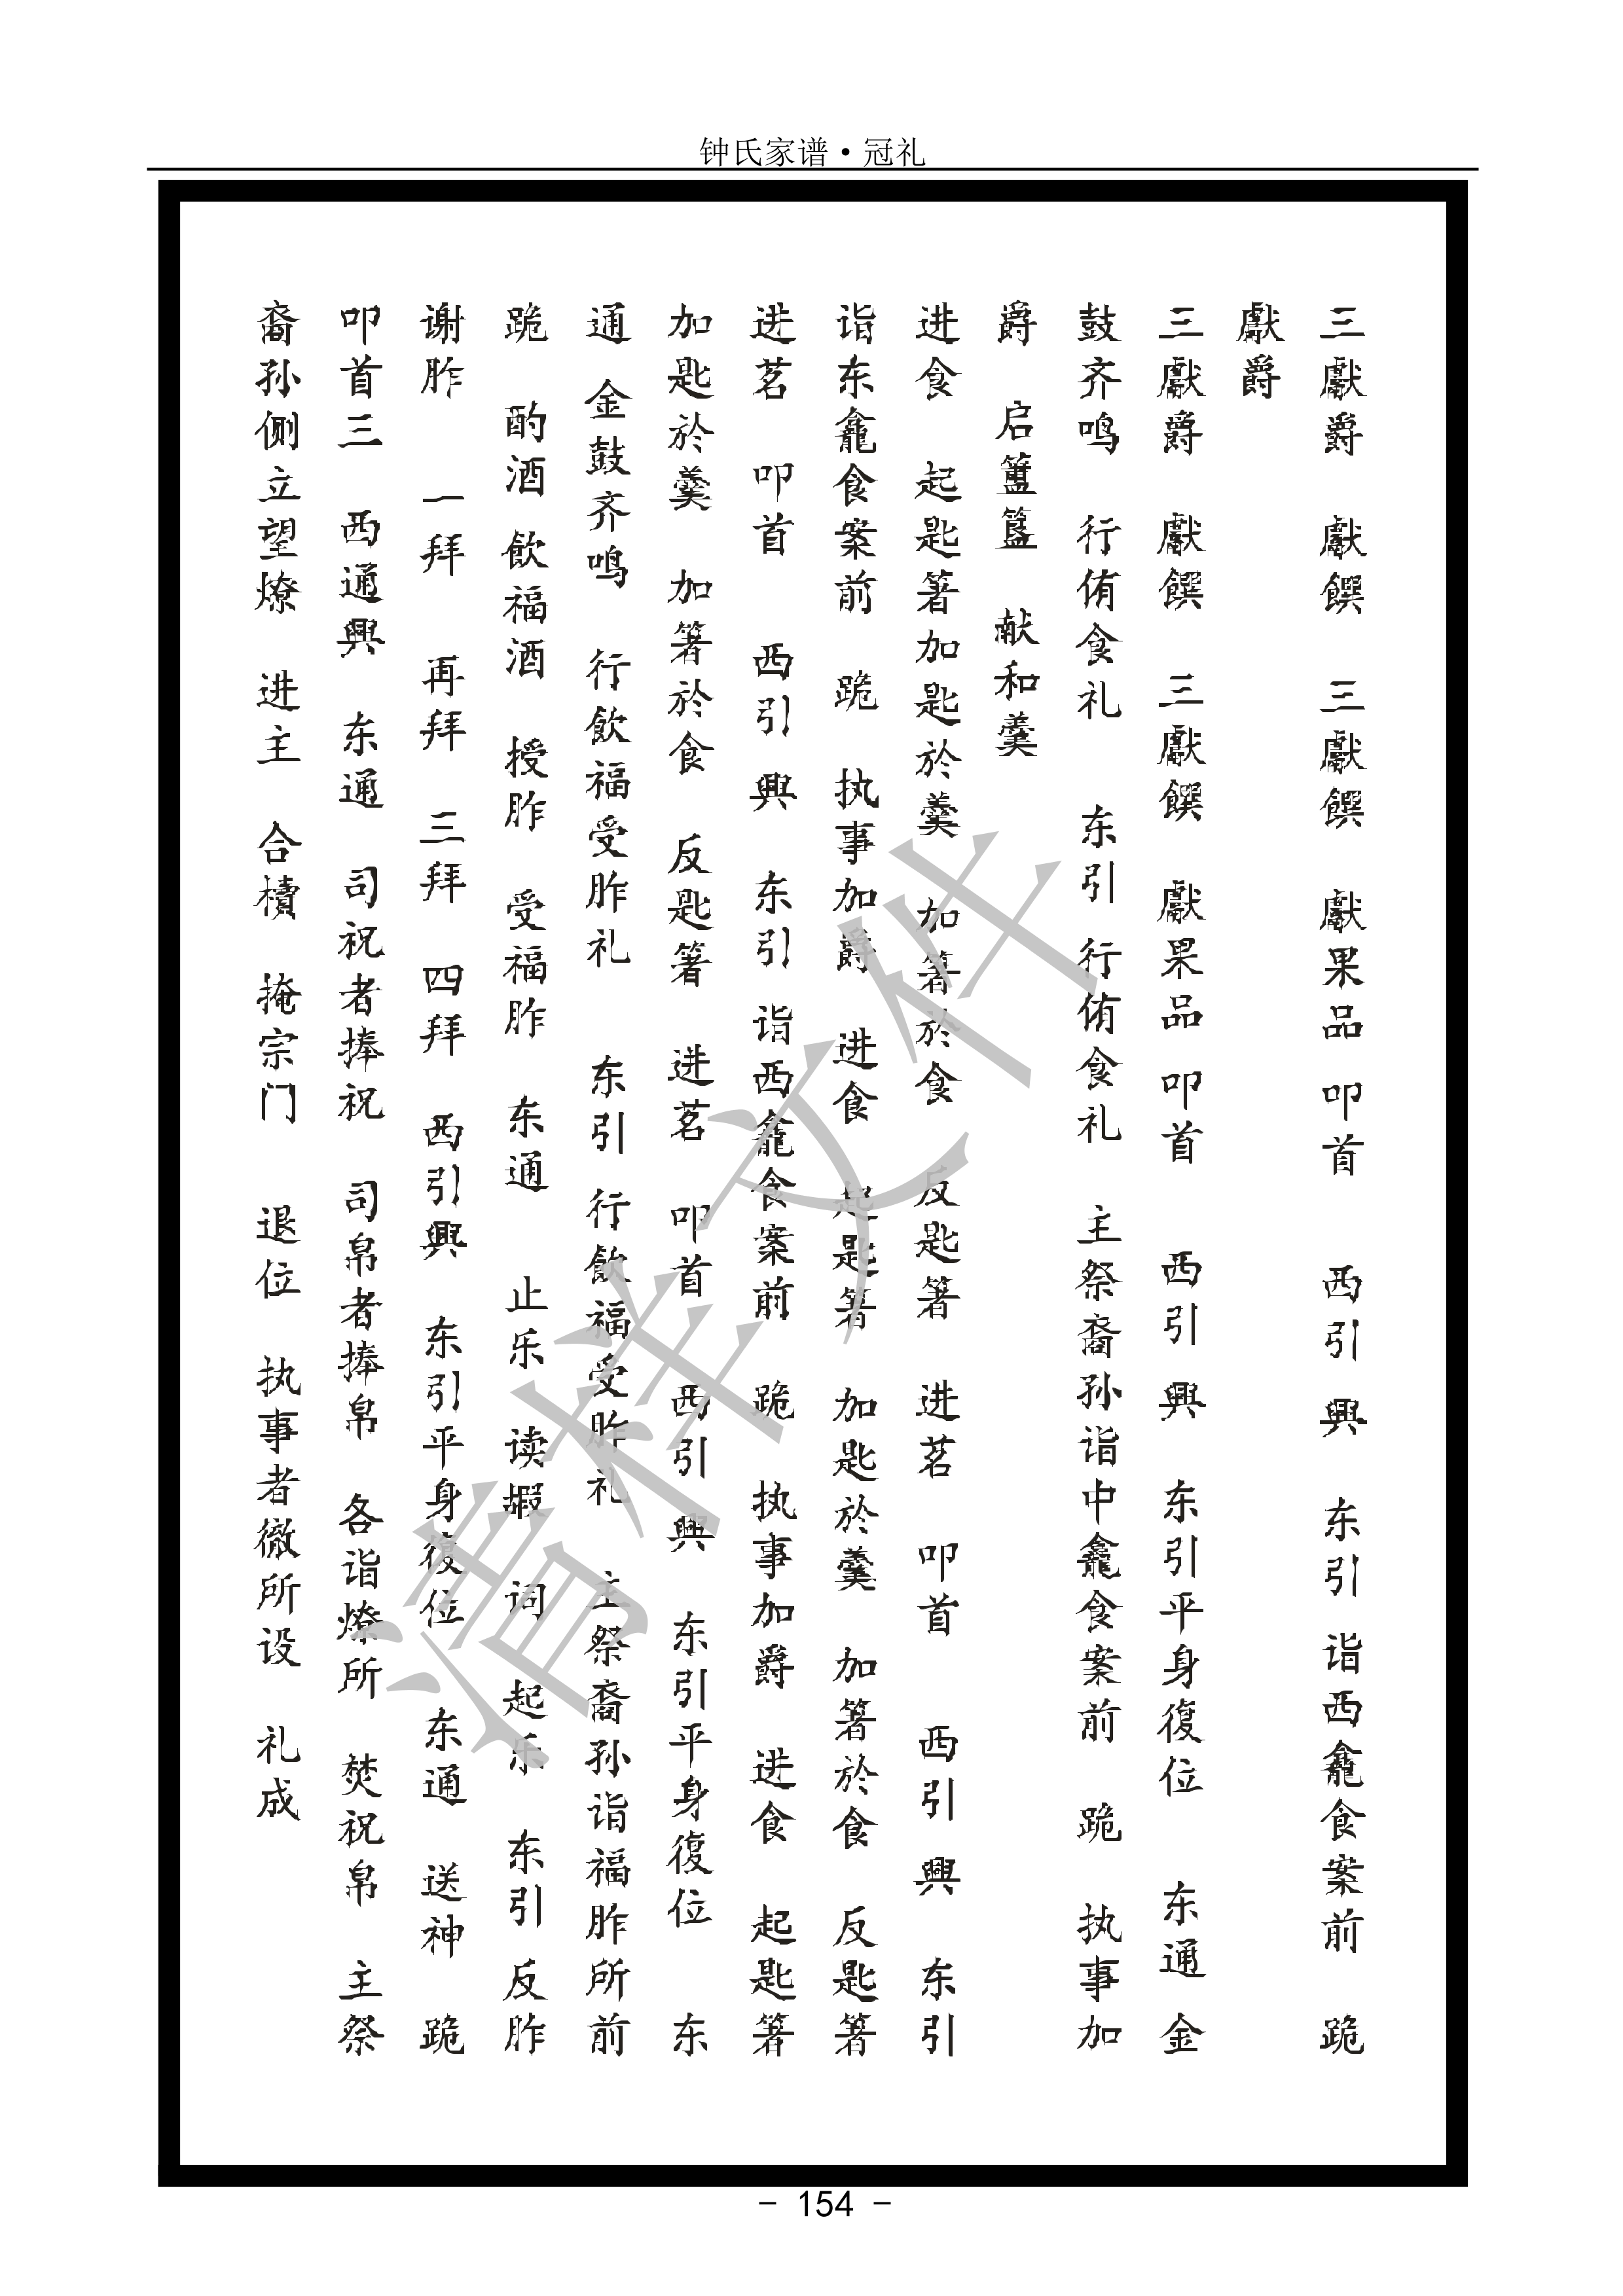 钟氏家谱·冠礼
三獻爵 獻饌 三獻饌 獻果品 叩首 西引 興 东引 诣西龕食案前 跪
獻爵
三獻爵 獻饌 三獻饌 獻果品 叩首 西引 興 东引平身復位 东通 金
鼓齐鸣 行侑食礼 东引 行侑食礼 主祭裔孙诣中龕食案前 跪 执事加
爵 启簠簋 献和羹
进食 起匙箸加匙於羹 加箸於食 反匙箸 进茗 叩首 西引 興 东引
诣东龕食案前 跪 执事加爵 进食 起匙箸 加匙於羹 加箸於食 反匙箸
进茗 叩首 西引 興 东引 诣西龕食案前 跪 执事加爵 进食 起匙箸
加匙於羹 加箸於食 反匙箸 进茗 叩首 西引 興 东引平身復位 东
通 金鼓齐鸣 行飲福受胙礼 东引 行飲福受胙礼 主祭裔孙诣福胙所前
跪 酌酒 飲福酒 授胙 受福胙 东通 止乐 读嘏 词 起乐 东引 反胙
谢胙 一拜 再拜 三拜 四拜 西引興 东引平身復位 东通 送神 跪
叩首三 西通興 东通 司祝者捧祝 司帛者捧帛 各诣燎所 焚祝帛 主祭
裔孙侧立望燎 进主 合櫝 掩宗门 退位 执事者徹所设 礼成
清样文件
- 154 -